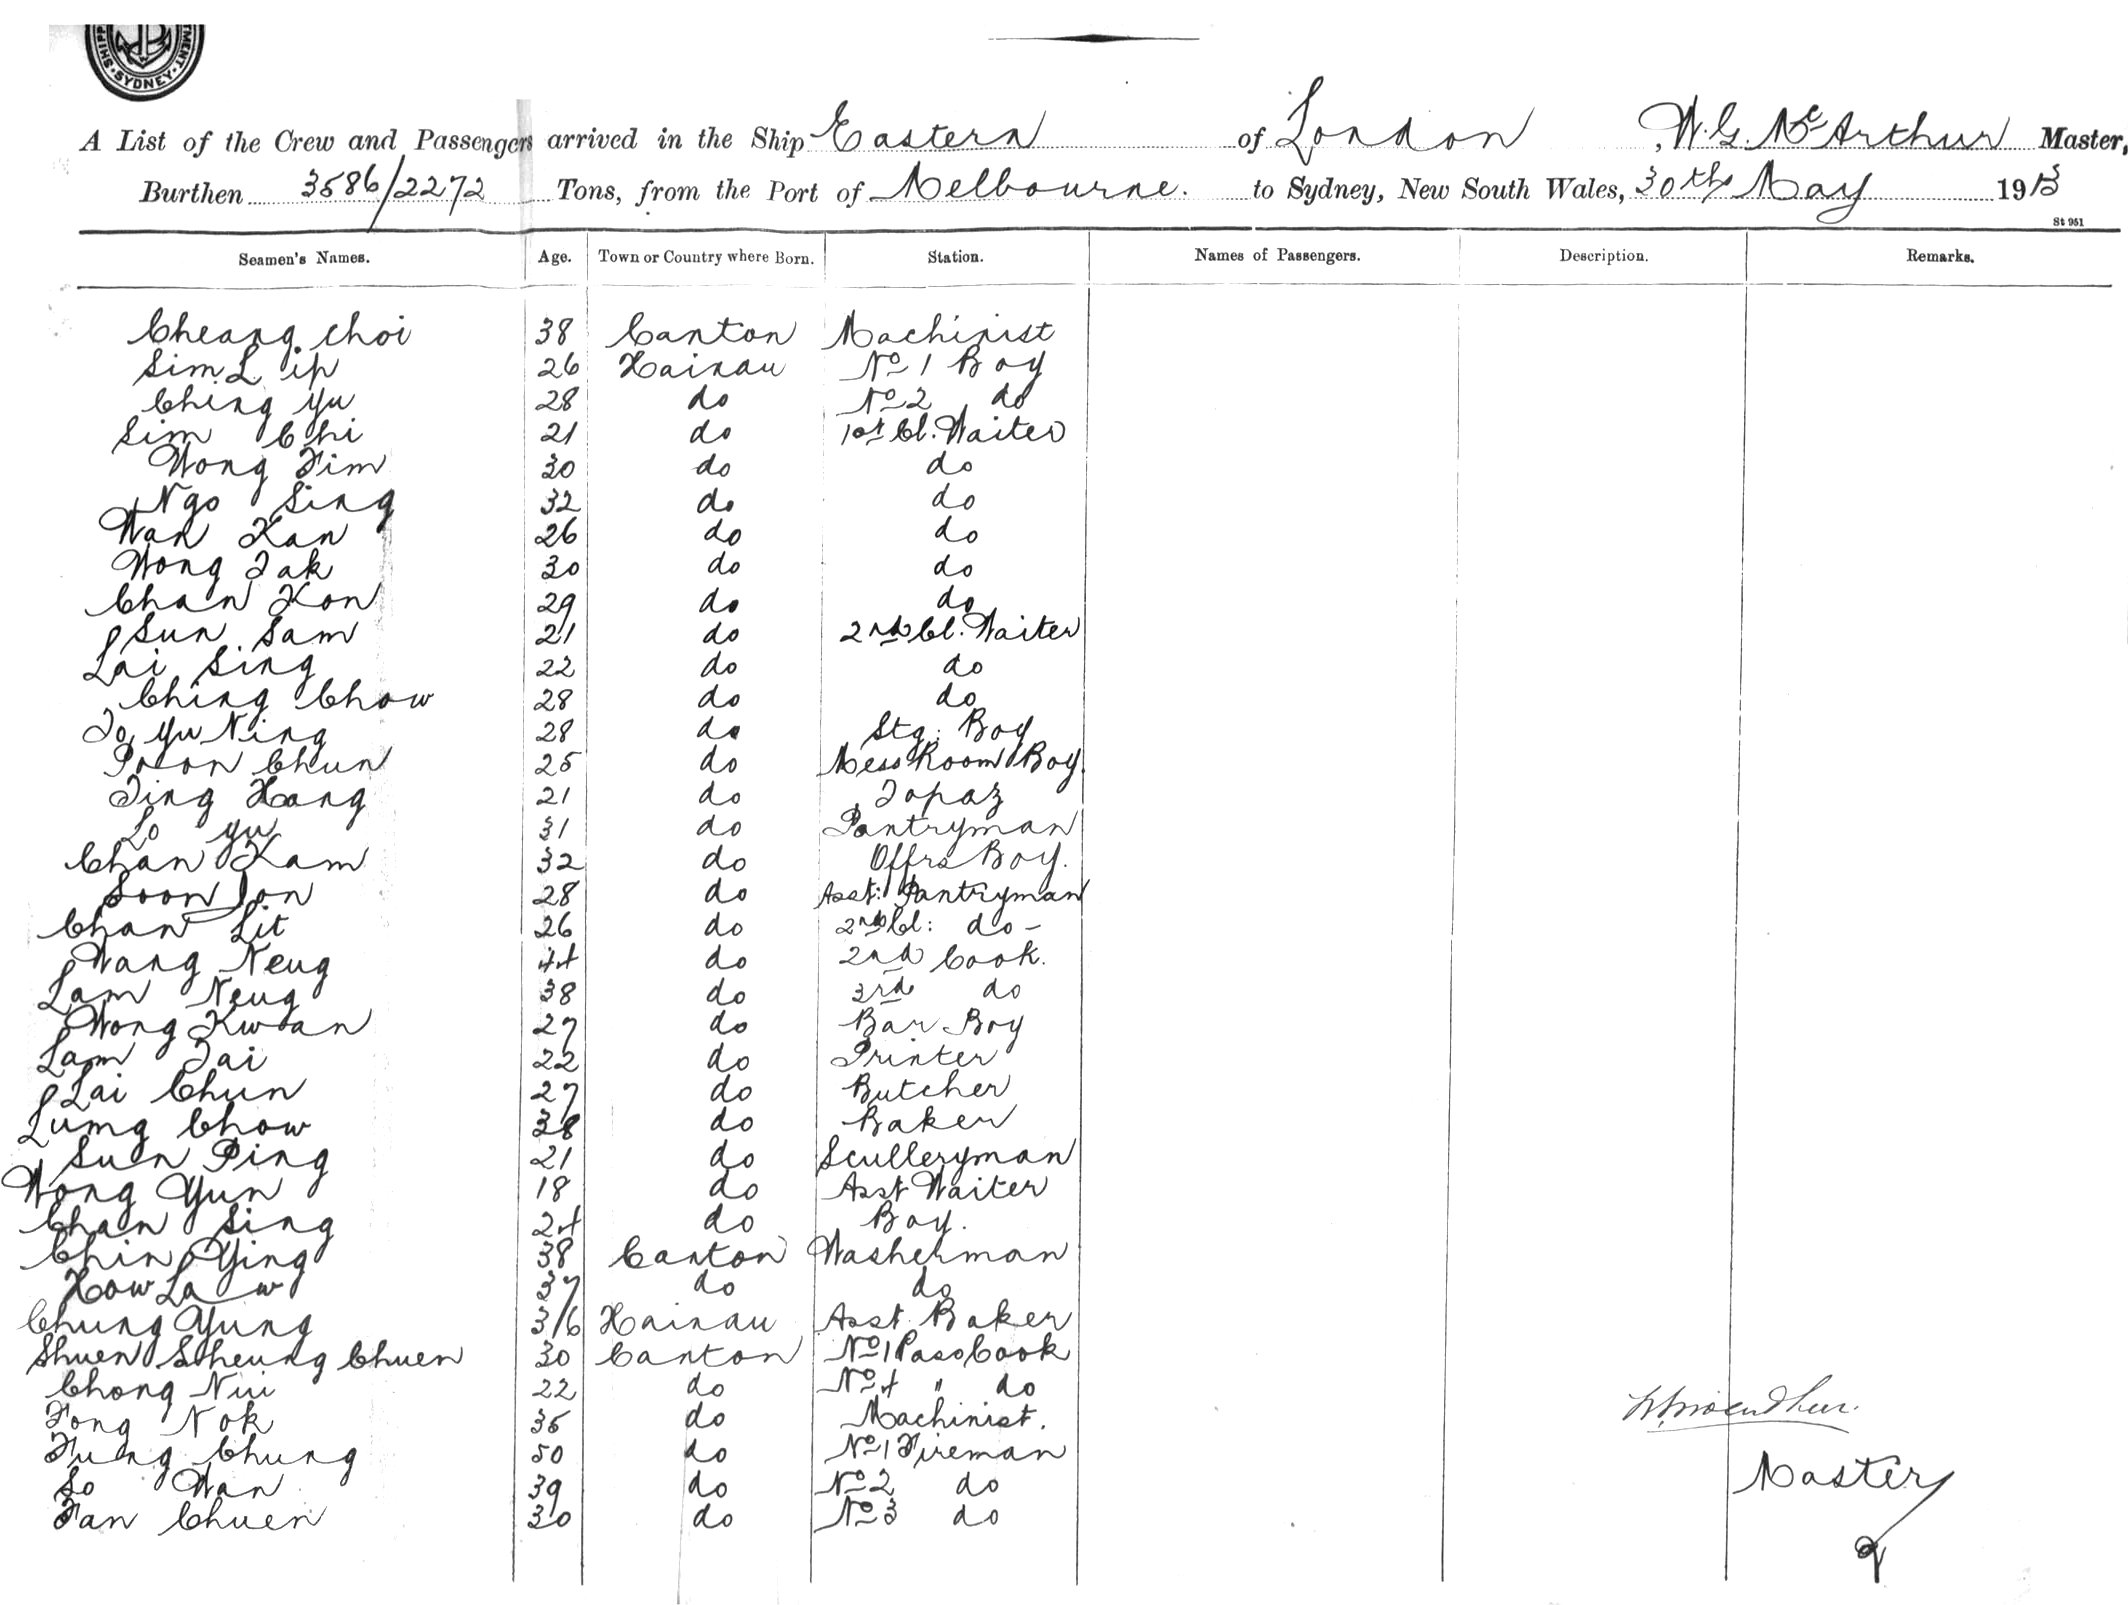 SHIPP TMENT SYDNEY
A List of the Crew and Passengers arrived in the Ship Eastern of London, W. G. McArthur Master,
Burthen 3586/2272 Tons, from the Port of Melbourne. to Sydney, New South Wales, 30th May 1913
St 951
Seamen's Names. Age. Town or Country where Born. Station. Names of Passengers. Description. Remarks.
Cheang Choi 38 Canton Machinist
Sim L ip 26 Hainau No 1 Boy
Ching Yu 28 do No 2 do
Sim Chi 21 do 1st Cl. Waiter
Wong Fim 30 do do
Ngo Sing 32 do do
Wan Kan 26 do do
Wong Tak 30 do do
Chan Kon 29 do do
Sun Sam 21 do 2nd Cl. Waiter
Lai Sing 22 do do
Ching Chow 28 do do
To Yu Ning 28 do Stg: Boy
Poon Chun 25 do Mess Room Boy.
Ting Hang 21 do Topaz
Lo Yu 31 do Pantryman
Chan Kam 32 do Offrs Boy.
Soon Jon 28 do Asst: Pantryman
Chan Lit 26 do 2nd Cl: do -
Wang Neug 44 do 2nd Cook.
Lam Neug 38 do 3rd do
Wong Kwan 27 do Bar Boy
Lam Tai 22 do Printer
Lai Chun 27 do Butcher
Lumg Chow 38 do Baker
Sun Ping 21 do Sculleryman
Wong Yun 18 do Asst Waiter
Chan Sing 24 do Boy.
Chin Ying 38 Canton Washerman
How Law 37 do do
Chung Yung 36 Hainau Asst. Baker
Shuen Sheung Chuen 30 Canton No 1 Pass Cook
Chong Nui 22 do No 4 " do
Fong Nok 35 do Machinist.
Fung Chung 50 do No 1 Fireman
So Wan 39 do No 2 do
Fan Chuen 30 do No 3 do
Master